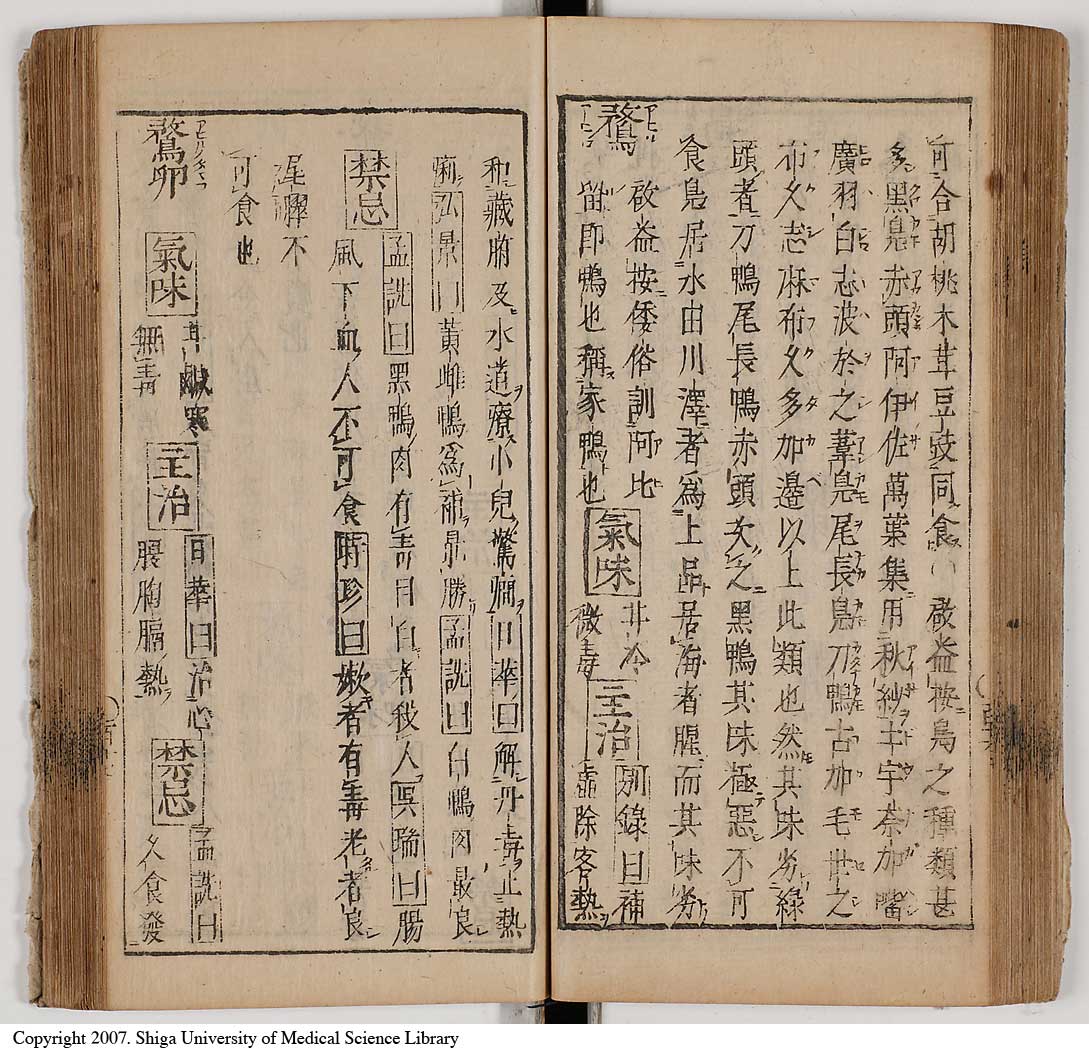 可合胡桃木茸豆豉同食 啟益按鳬之種類甚
多黒鳬赤頭阿伊佐萬葉集用秋紗宇奈加觜
廣羽白志波於之葦鳬尾長鳬刀鴨古加毛世之
布久志麻布久多加邊以上此類也然其味劣緑
頭者刀鴨尾長鴨赤頭次之黒鴨其味極惡不可
食鳬居水田川澤者爲上品居海者腥而其味劣
鶩 啟益按倭俗訓阿比
留即鴨也稱家鴨也 氣味 甘冷
微毒 主治 別錄曰補
虛除客熱
和藏腑及水道療小兒驚癇日華曰解丹毒止熱
痢弘景曰黃雌鴨爲補最勝孟詵曰白鴨肉最良
禁忌 孟詵曰黑鴨肉有毒目白者殺人吳瑞曰腸
風下血人不可食時珍曰嫩者有毒老者良
尾臎不
可食也
鶩卵 氣味 甘鹹寒
無毒 主治 日華曰治心
腹胸膈熱 禁忌 孟詵曰
久食發
Copyright 2007. Shiga University of Medical Science Library